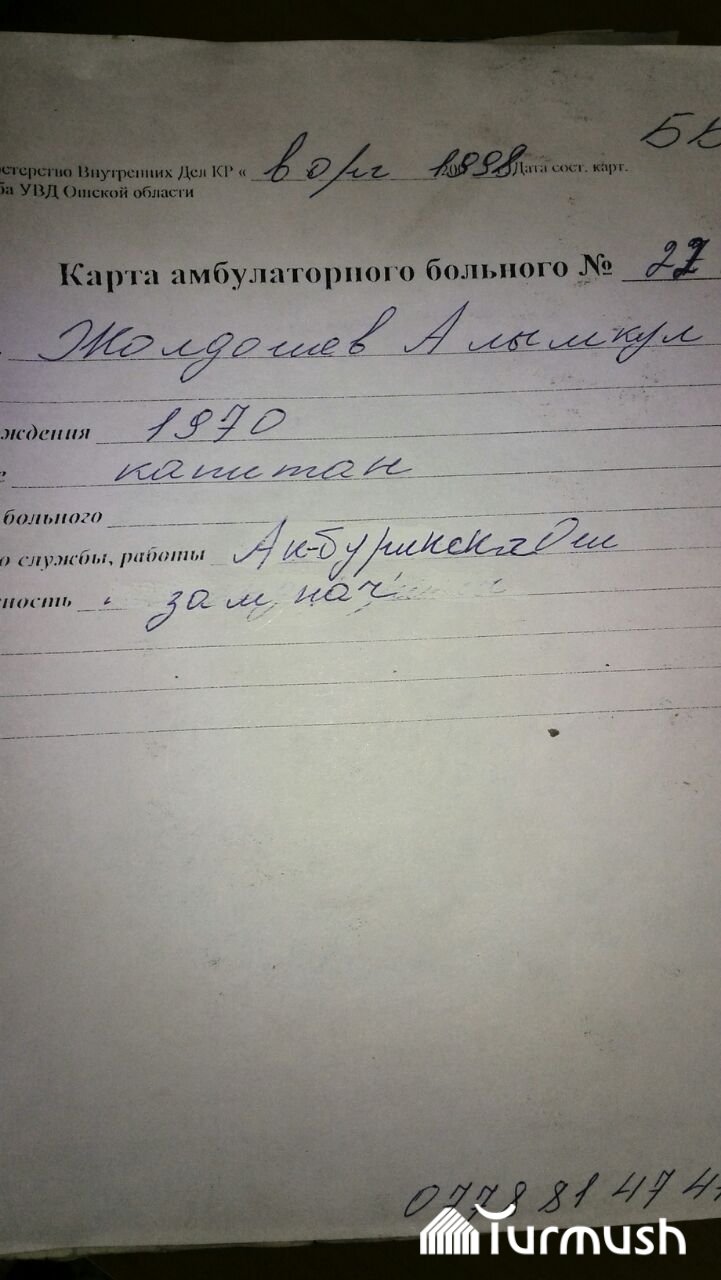 ББ
стерство Внутренних Дел КР « в орг 1998 Дата сост. карт.
ба УВД Ошской области
Карта амбулаторного больного № 27
Жолдошев Алымкул
ждения 1970
е капитан
больного
о службы, работы Ак-буринская Ош
ность зам нач
0778 81 47 4
Turmush